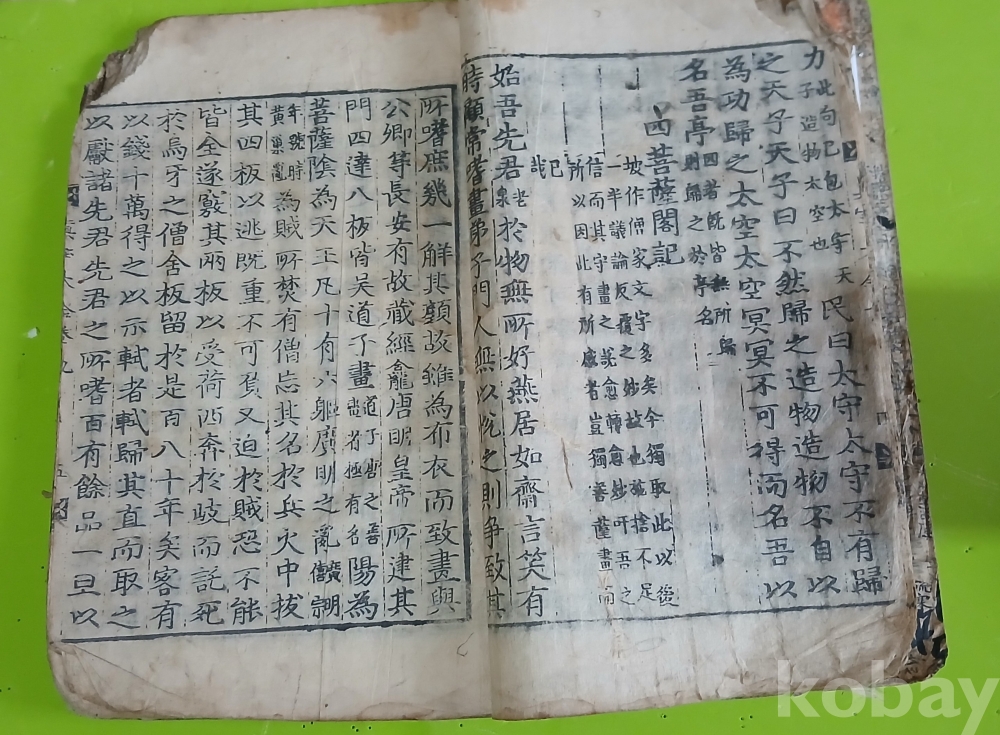 力 此句已包太守天子造物太空也 民曰太守太守不有歸
之天子天子曰不然歸之造物造物不自以
為功歸之太空太空冥冥不可得而名吾以
名吾亭 四者旣皆無所歸則歸之於亭名
四菩薩閣記
坡作僧家文字多矣今獨取此以後
一半議論反覆之妙故也施捨不足
信而其守畫之說愈轉愈妙吁吾之
所以因此有所感者豈獨菩薩畫而
已哉
始吾先君 老泉 於物無所好燕居如齋言笑有
時顧常嗜畫弟子門人無以悅之則爭致其
所嗜庶幾一解其顏故雖為布衣而致畫與
公卿等長安有故藏經龕唐明皇帝所建其
門四達八板皆吳道子畫 道子唐之善畫者極有名 陽為
菩薩陰為天王凡十有六軀廣明之亂 僖宗朝
年號時黃巢亂 為賊所焚有僧忘其名於兵火中拔
其四板以逃旣重不可負又迫於賊恐不能
皆全遂竅其兩板以受荷西奔於岐而託死
於烏牙之僧舍板留於是百八十年矣客有
以錢十萬得之以示軾者軾歸其直而取之
以獻諸先君先君之所嗜百有餘品一旦以
kobay